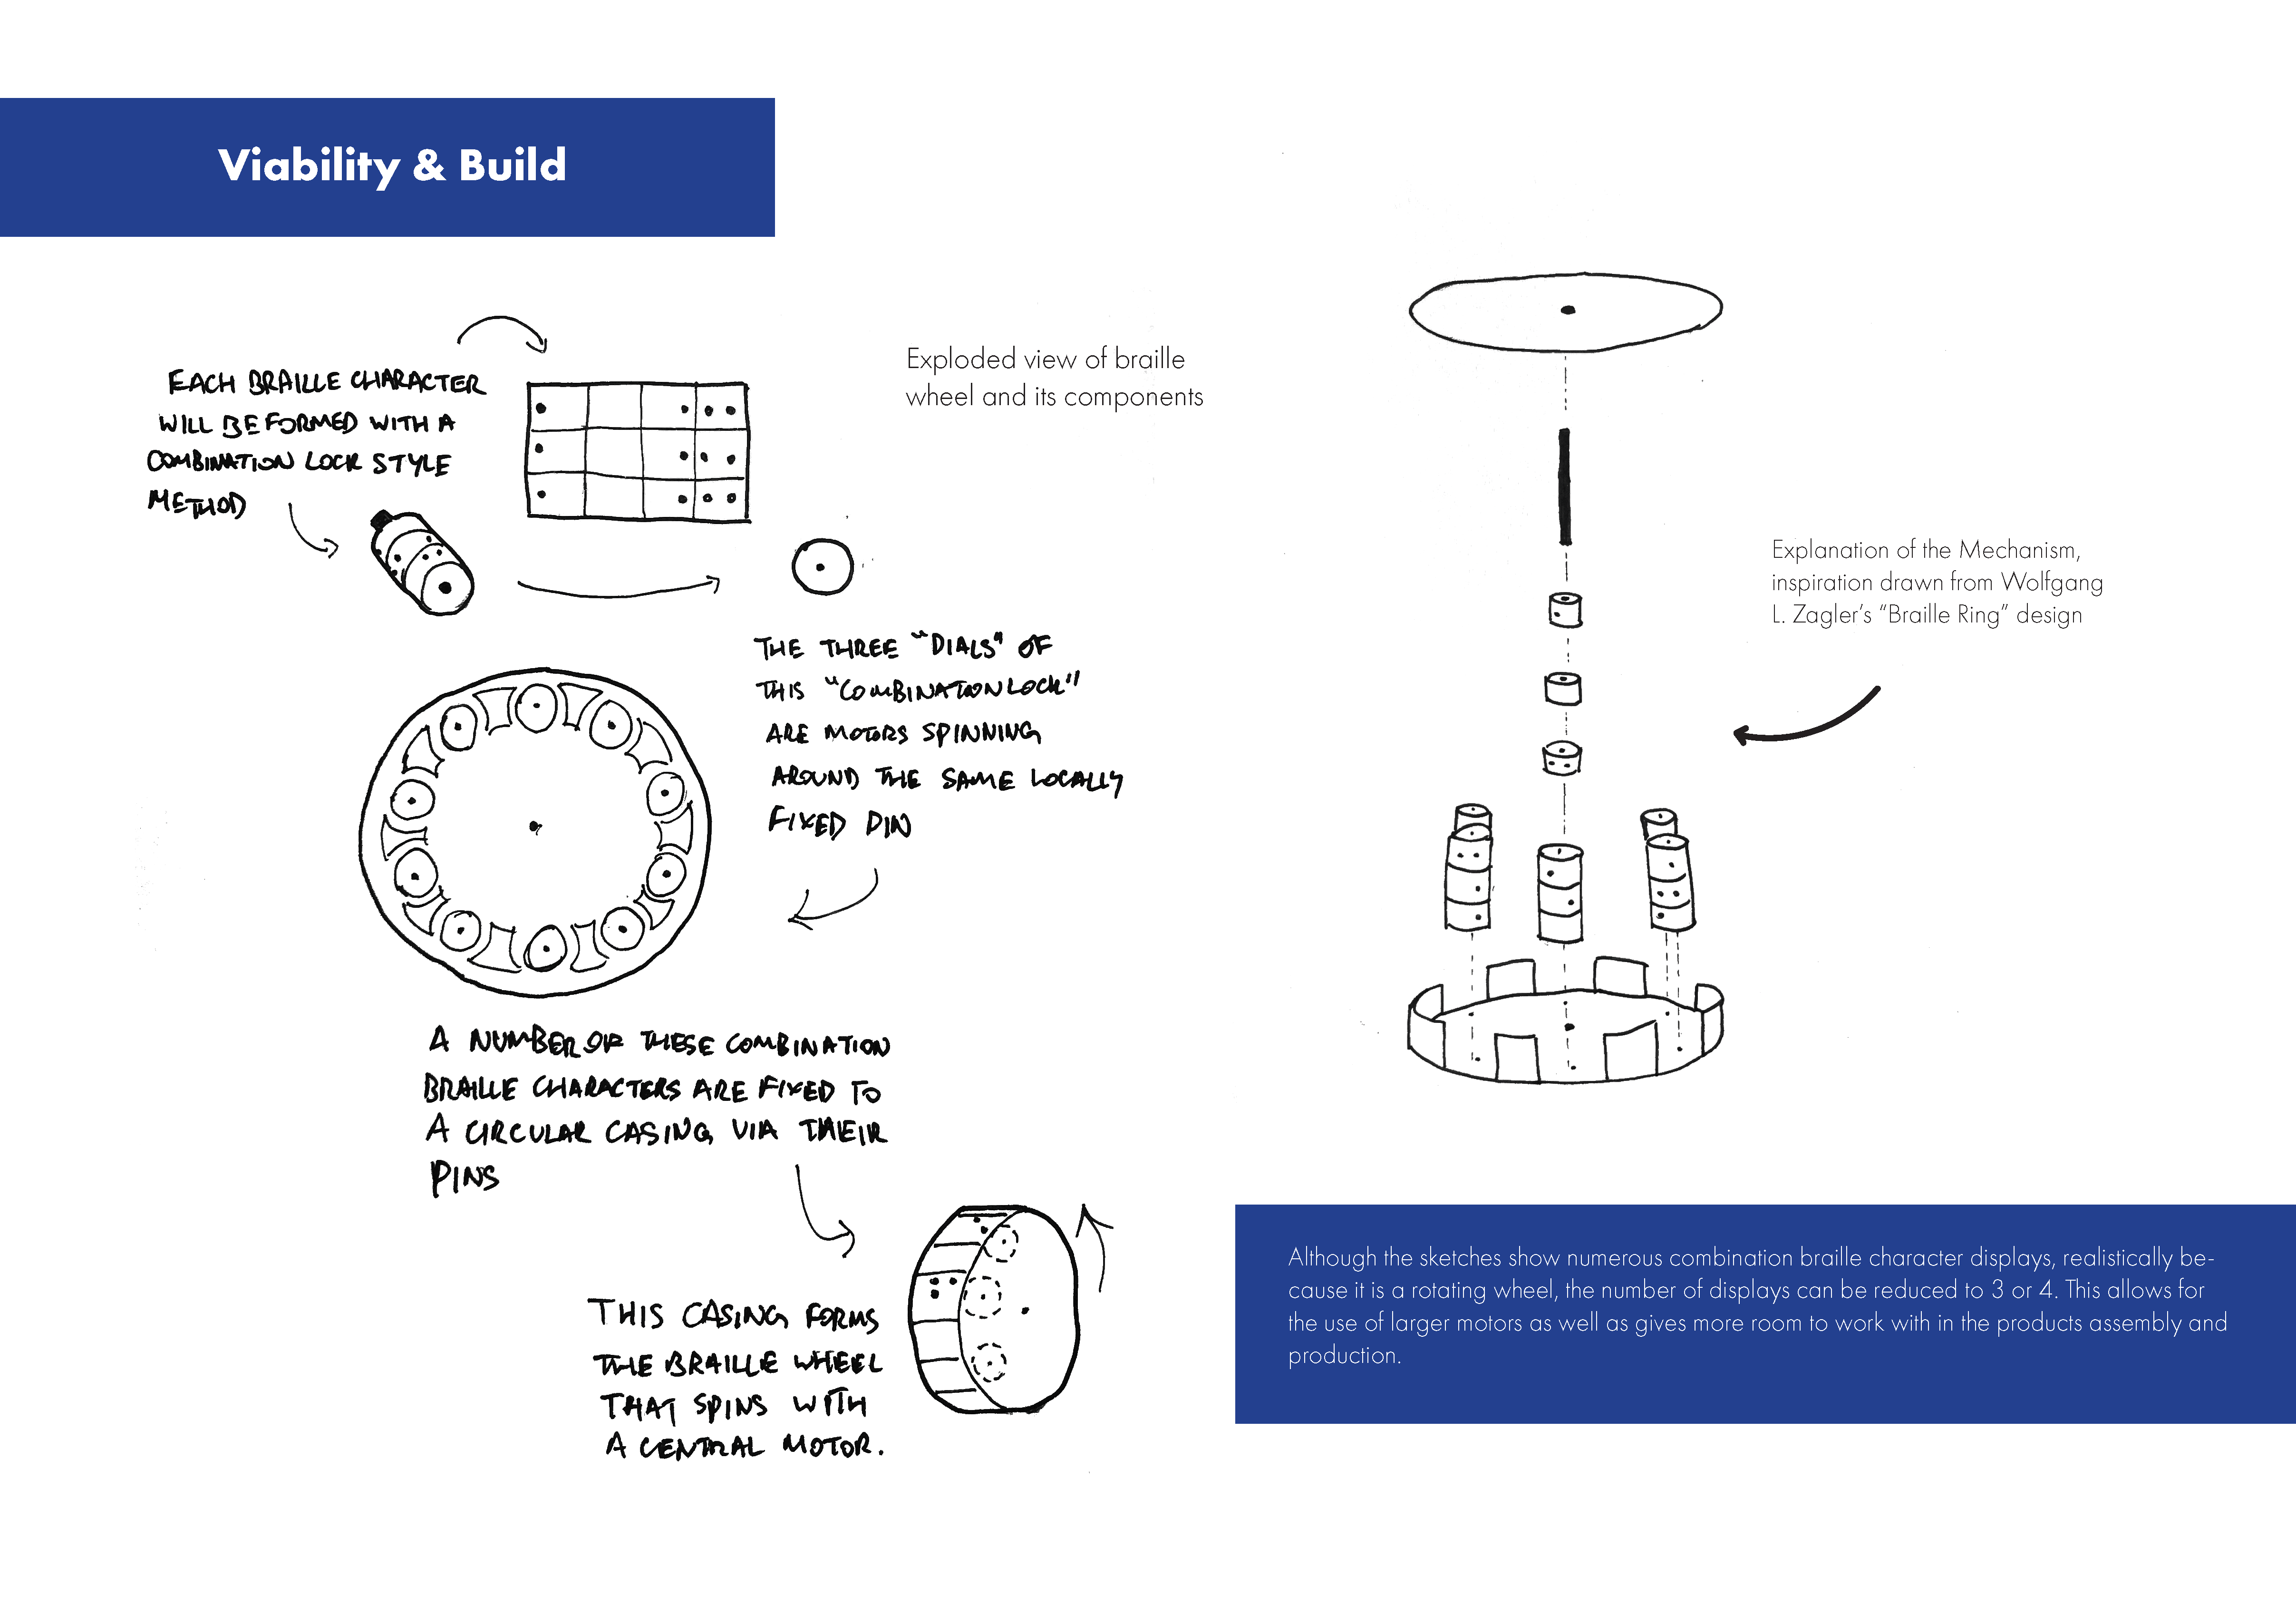 Viability & Build
EACH BRAILLE CHARACTER
WILL BE FORMED WITH A
COMBINATION LOCK STYLE
METHOD
Exploded view of braille
wheel and its components
THE THREE "DIALS" OF
THIS "COMBINATION LOCK"
ARE MOTORS SPINNING
AROUND THE SAME LOCALLY
FIXED PIN
A NUMBER OF THESE COMBINATION
BRAILLE CHARACTERS ARE FIXED TO
A CIRCULAR CASING VIA THEIR
PINS
THIS CASING FORMS
THE BRAILLE WHEEL
THAT SPINS WITH
A CENTRAL MOTOR.
Explanation of the Mechanism,
inspiration drawn from Wolfgang
L. Zagler's "Braille Ring" design
Although the sketches show numerous combination braille character displays, realistically be-
cause it is a rotating wheel, the number of displays can be reduced to 3 or 4. This allows for
the use of larger motors as well as gives more room to work with in the products assembly and
production.